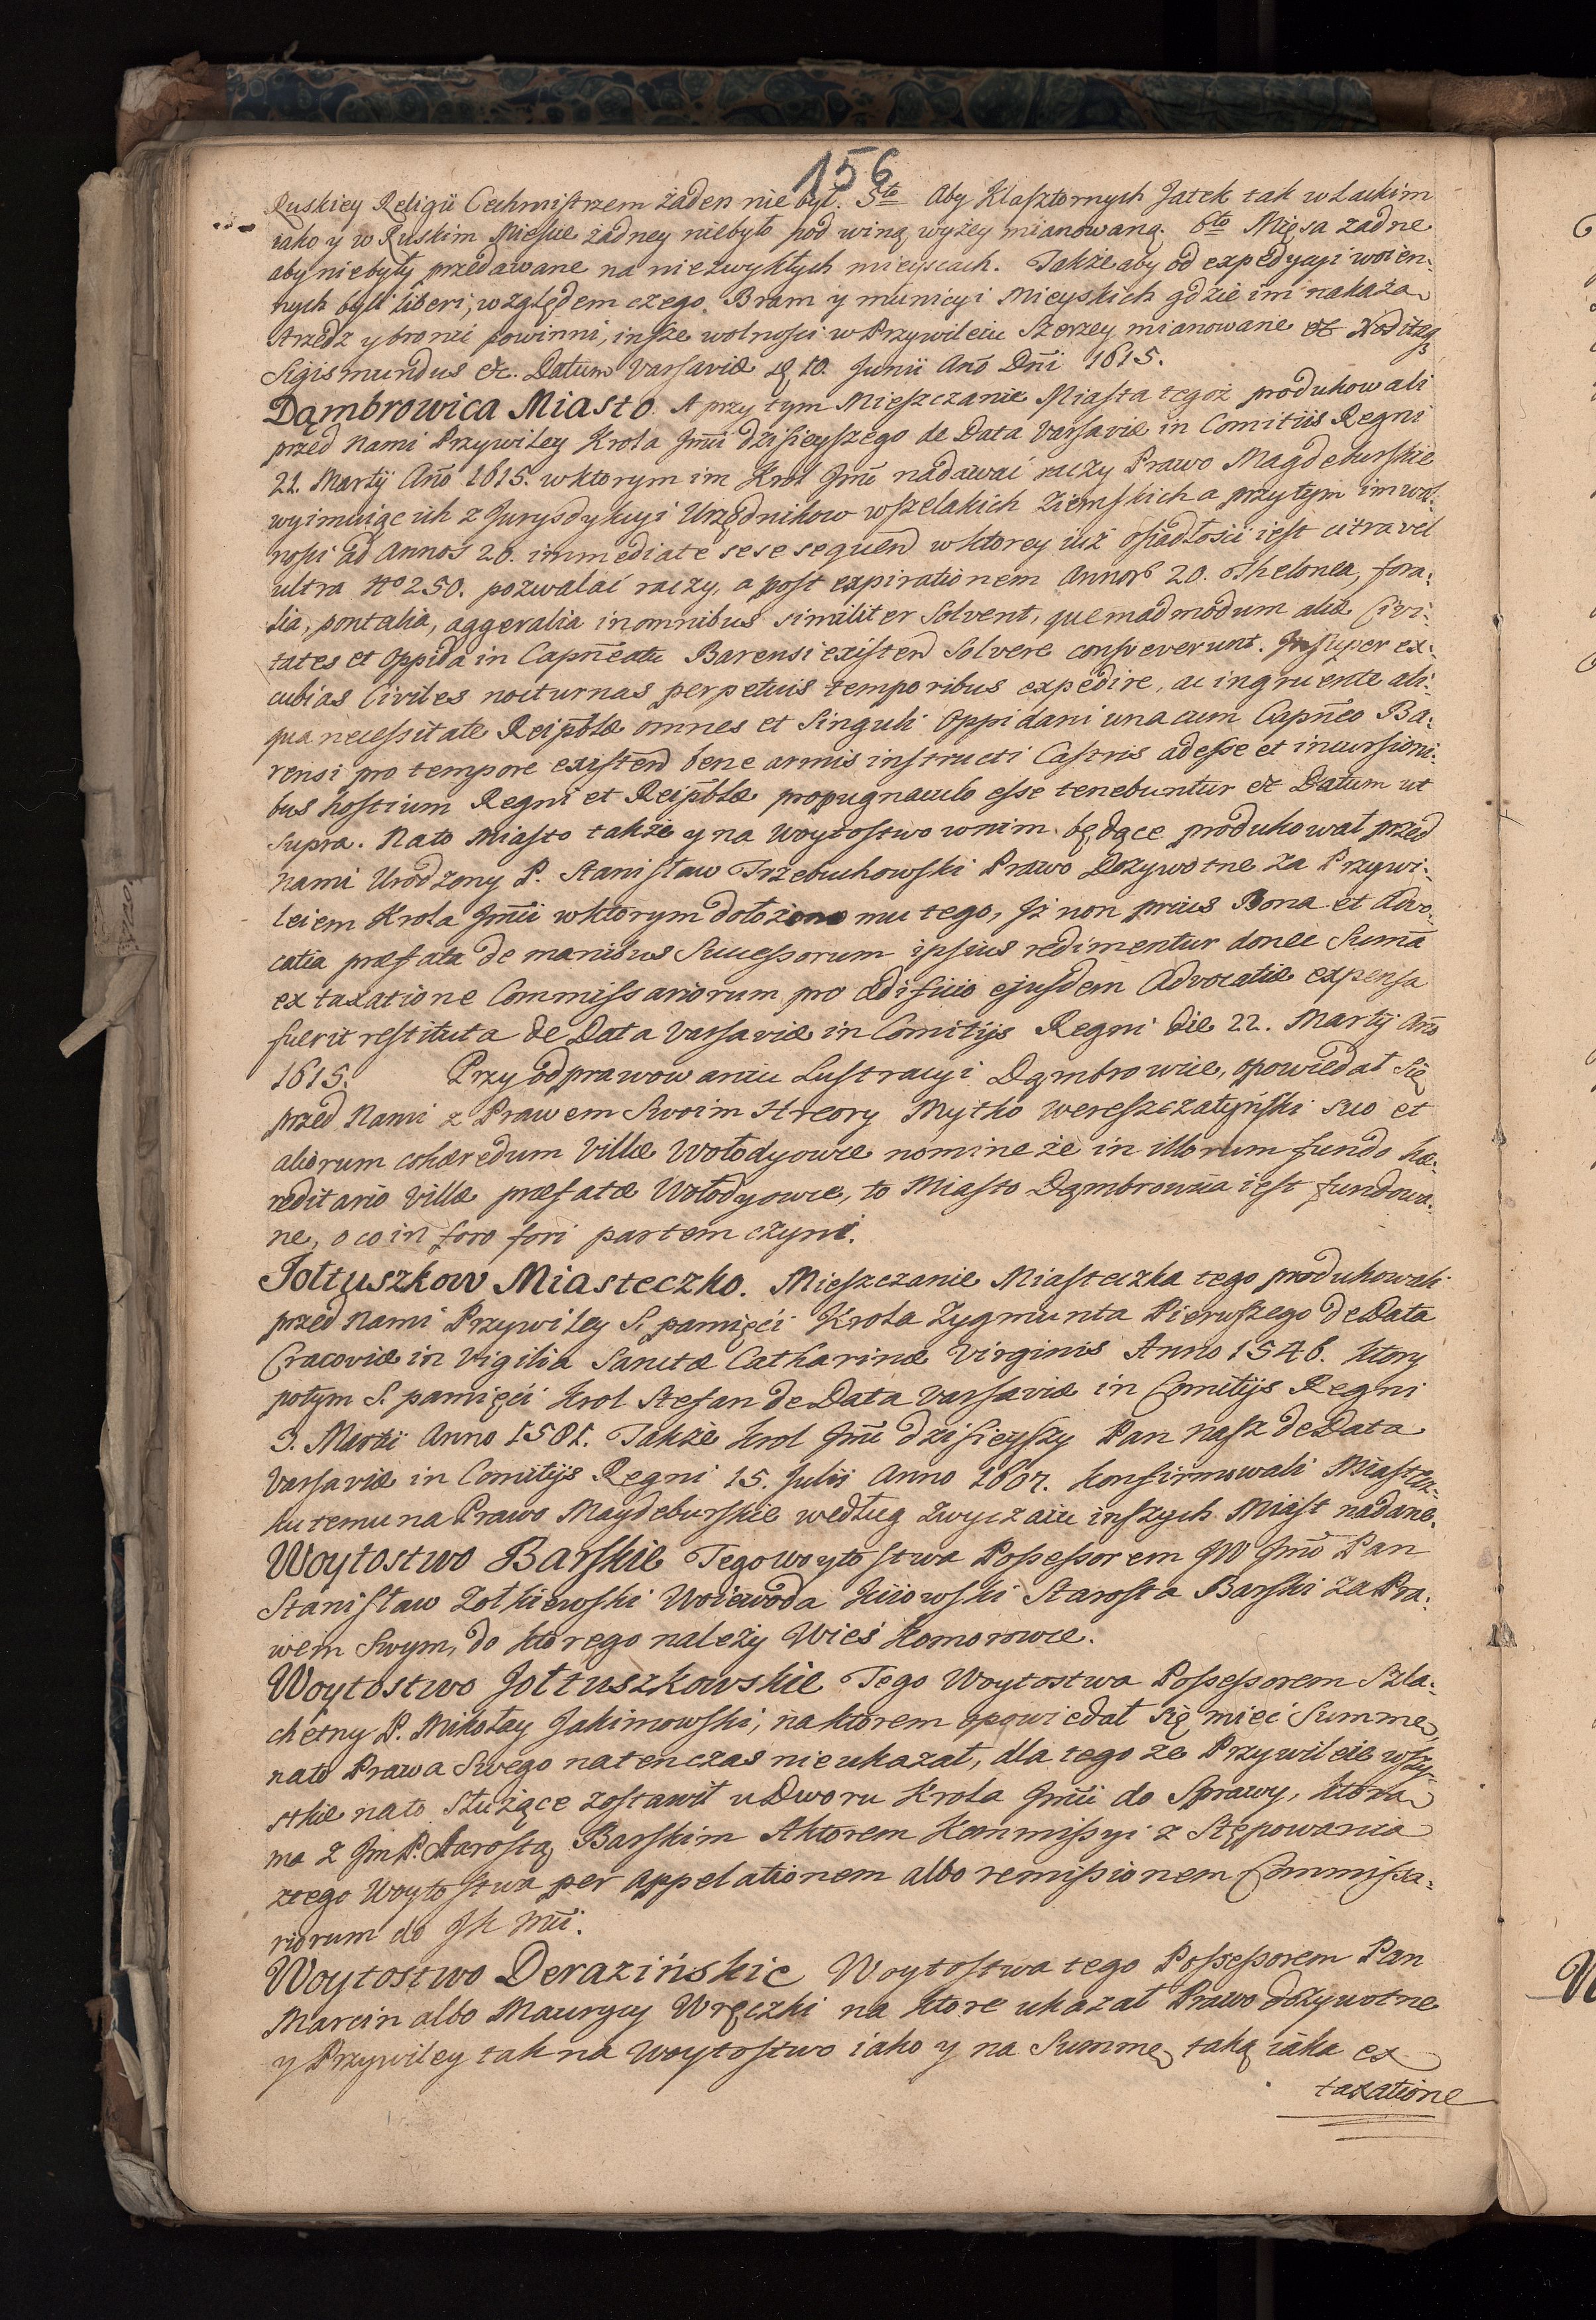 156
Ruskiey Religii Cechmistrzem żaden nie był. 5to Aby Klasztornych Jatek tak w Lackim
iako y w Ruskim Mieście żadney niebyło pod winą wyżey mianowaną. 6to Mięsa żadne
aby niebyły przedawane na niezwykłych mieyscach. Także aby od expedycyi woien:
nych byli liberi, względem czego Bram y municyi Mieyskich gdzie im nakażą
strzedz y bronić powinni, insze wolności w Przywileiu szerzey mianowane &
Sigismundus &c. Datum Varsaviæ 10. Junii Anō Dñi 1615.
Dąmbrowica Miasto. A przy tym Mieszczanie Miasta tegoż produkowali
przed nami Przywiley Krola Jmci dzisieyszego de Data Varsaviæ in Comitiis Regni
21. Martij Anō 1615. w ktorym im Krol Jmć nadawać raczy Prawo Magdeburskie
wyimuiąc ich z Jurysdykcyi Urzędnikow wszelakich Ziemskich a przytym im wol:
ności ad Annos 20. immediate sese sequend w ktorey iuż osiadłości iest citra vel
ultra No 250. pozwalać raczy, a post expirationem Annorō 20. Thelonea, fora:
lia, pontalia, aggeralia in omnibus similiter solvent, quemadmodum aliæ Civi:
tates et Oppida in Capñeatu Barensi existend solvere consveverunt. Insuper ex:
cubias Civiles nocturnas perpetuis temporibus expedire, ac ingruente ali:
qua necessitate Reipblæ omnes et singuli Oppidani una cum Capñeo Ba:
rensi pro tempore existend bene armis instructi Castris adesse et incursioni:
bus hostium Regni et Reipblæ propugnaculo esse tenebuntur & Datum ut
supra. Nato Miasto także y na Woytostwo w nim będące produkował przed
nami Urodzony P. Stanisław Trzebuchowski Prawo Dożywotne za Przywi:
leiem Krola Jmci w ktorym dołożono mu tego, iż non prius Bona et Advo:
catia præfata de manibus Successorum ipsius redimentur donec Summa
ex taxatione Commissariorum pro ædificio ejusdem Advocatiæ expensa
fuerit restituta de Data Varsaviæ in Comitijs Regni die 22. Martij Anō
1615. Przy odprawowaniu Lustracyi Dąmbrowice, opowiedał się
przed nami z Prawem swoim Hreory Mytko Wereszczatyński suo et
aliorum cohæredum Villæ Wołodyowce nomine że in illorum fundo hæ:
reditario Villæ præfatæ Wołodyowce, to Miasto Dąmbrowica iest fundowa:
ne, o co in foro fori partem czyni.
Jołtuszkow Miasteczko. Mieszczanie Miasteczka tego produkowali
przed nami Przywiley S. pamięci Krola Zygmunta Pierwszego de Data
Cracoviæ in Vigilia Sanctæ Catharinæ Virginis Anno 1546. ktory
potym S. pamięci Krol Stefan de Data Varsaviæ in Comitijs Regni
3. Martii Anno 1581. Także Krol Jmć dzisieyszy Pan nasz de Data
Varsaviæ in Comitijs Regni 15. Julii Anno 1607. konfirmowali Miastecz:
ku temu na Prawo Maydeburskie według zwyczaiu inszych Miast nadane.
Woytostwo Barskie Tego woytostwa Possessorem JW Jmć Pan
Stanisław Zołkiewski Woiewoda Kiiowski Starosta Barski za Pra:
wem swym, do ktorego należy Wieś Komorowce.
Woytostwo Jołtuszkowskie Tego Woytostwa Possessorem Szla:
chetny P. Mikołay Jakimowski, na ktorem opowiedał się mieć Summę,
nato Prawa swego natenczas nie ukazał, dla tego że Przywileie wszy:
stkie nato służące zostawił u Dworu Krola Jmci do Sprawy, ktorą
ma z Jm P. Starostą Barskim Aktorem Kommissyi z Stępowania
z tego Woytostwa per appelationem albo remissionem Commissa:
riorum do JK Mci.
Woytostwo Deraźińskie Woytostwa tego Possessorem Pan
Marcin albo Maurycy Wręczki na ktore ukazał Prawo dożywotne
y Przywiley tak na Woytostwo iako y na Summę taką iaka ex
taxatione